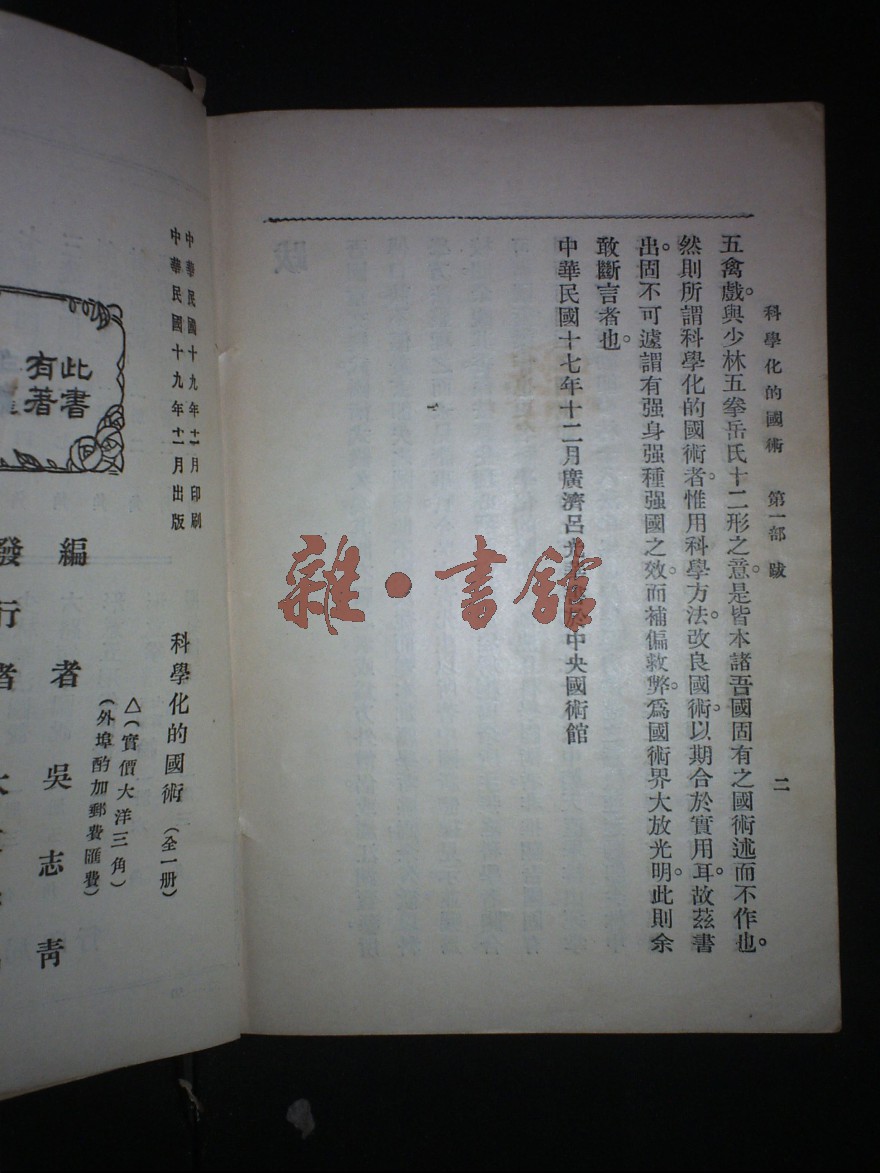 科學化的國術　第一部　跋
二
五禽戲。與少林五拳岳氏十二形之意。是皆本諸吾國固有之國術述而不作也。
然則所謂科學化的國術者。惟用科學方法。改良國術。以期合於實用耳。故茲書
出。固不可遽謂有强身强種强國之效。而補偏救弊。爲國術界大放光明。此則余
敢斷言者也。
中華民國十七年十二月廣濟呂光
於中央國術館
雜·書舘
中華民國十九年十一月印刷
中華民國十九年十一月出版
科學化的國術（全一册）
△（實價大洋三角）
（外埠酌加郵費匯費）
此書
有著
編者　吳志靑
發行者